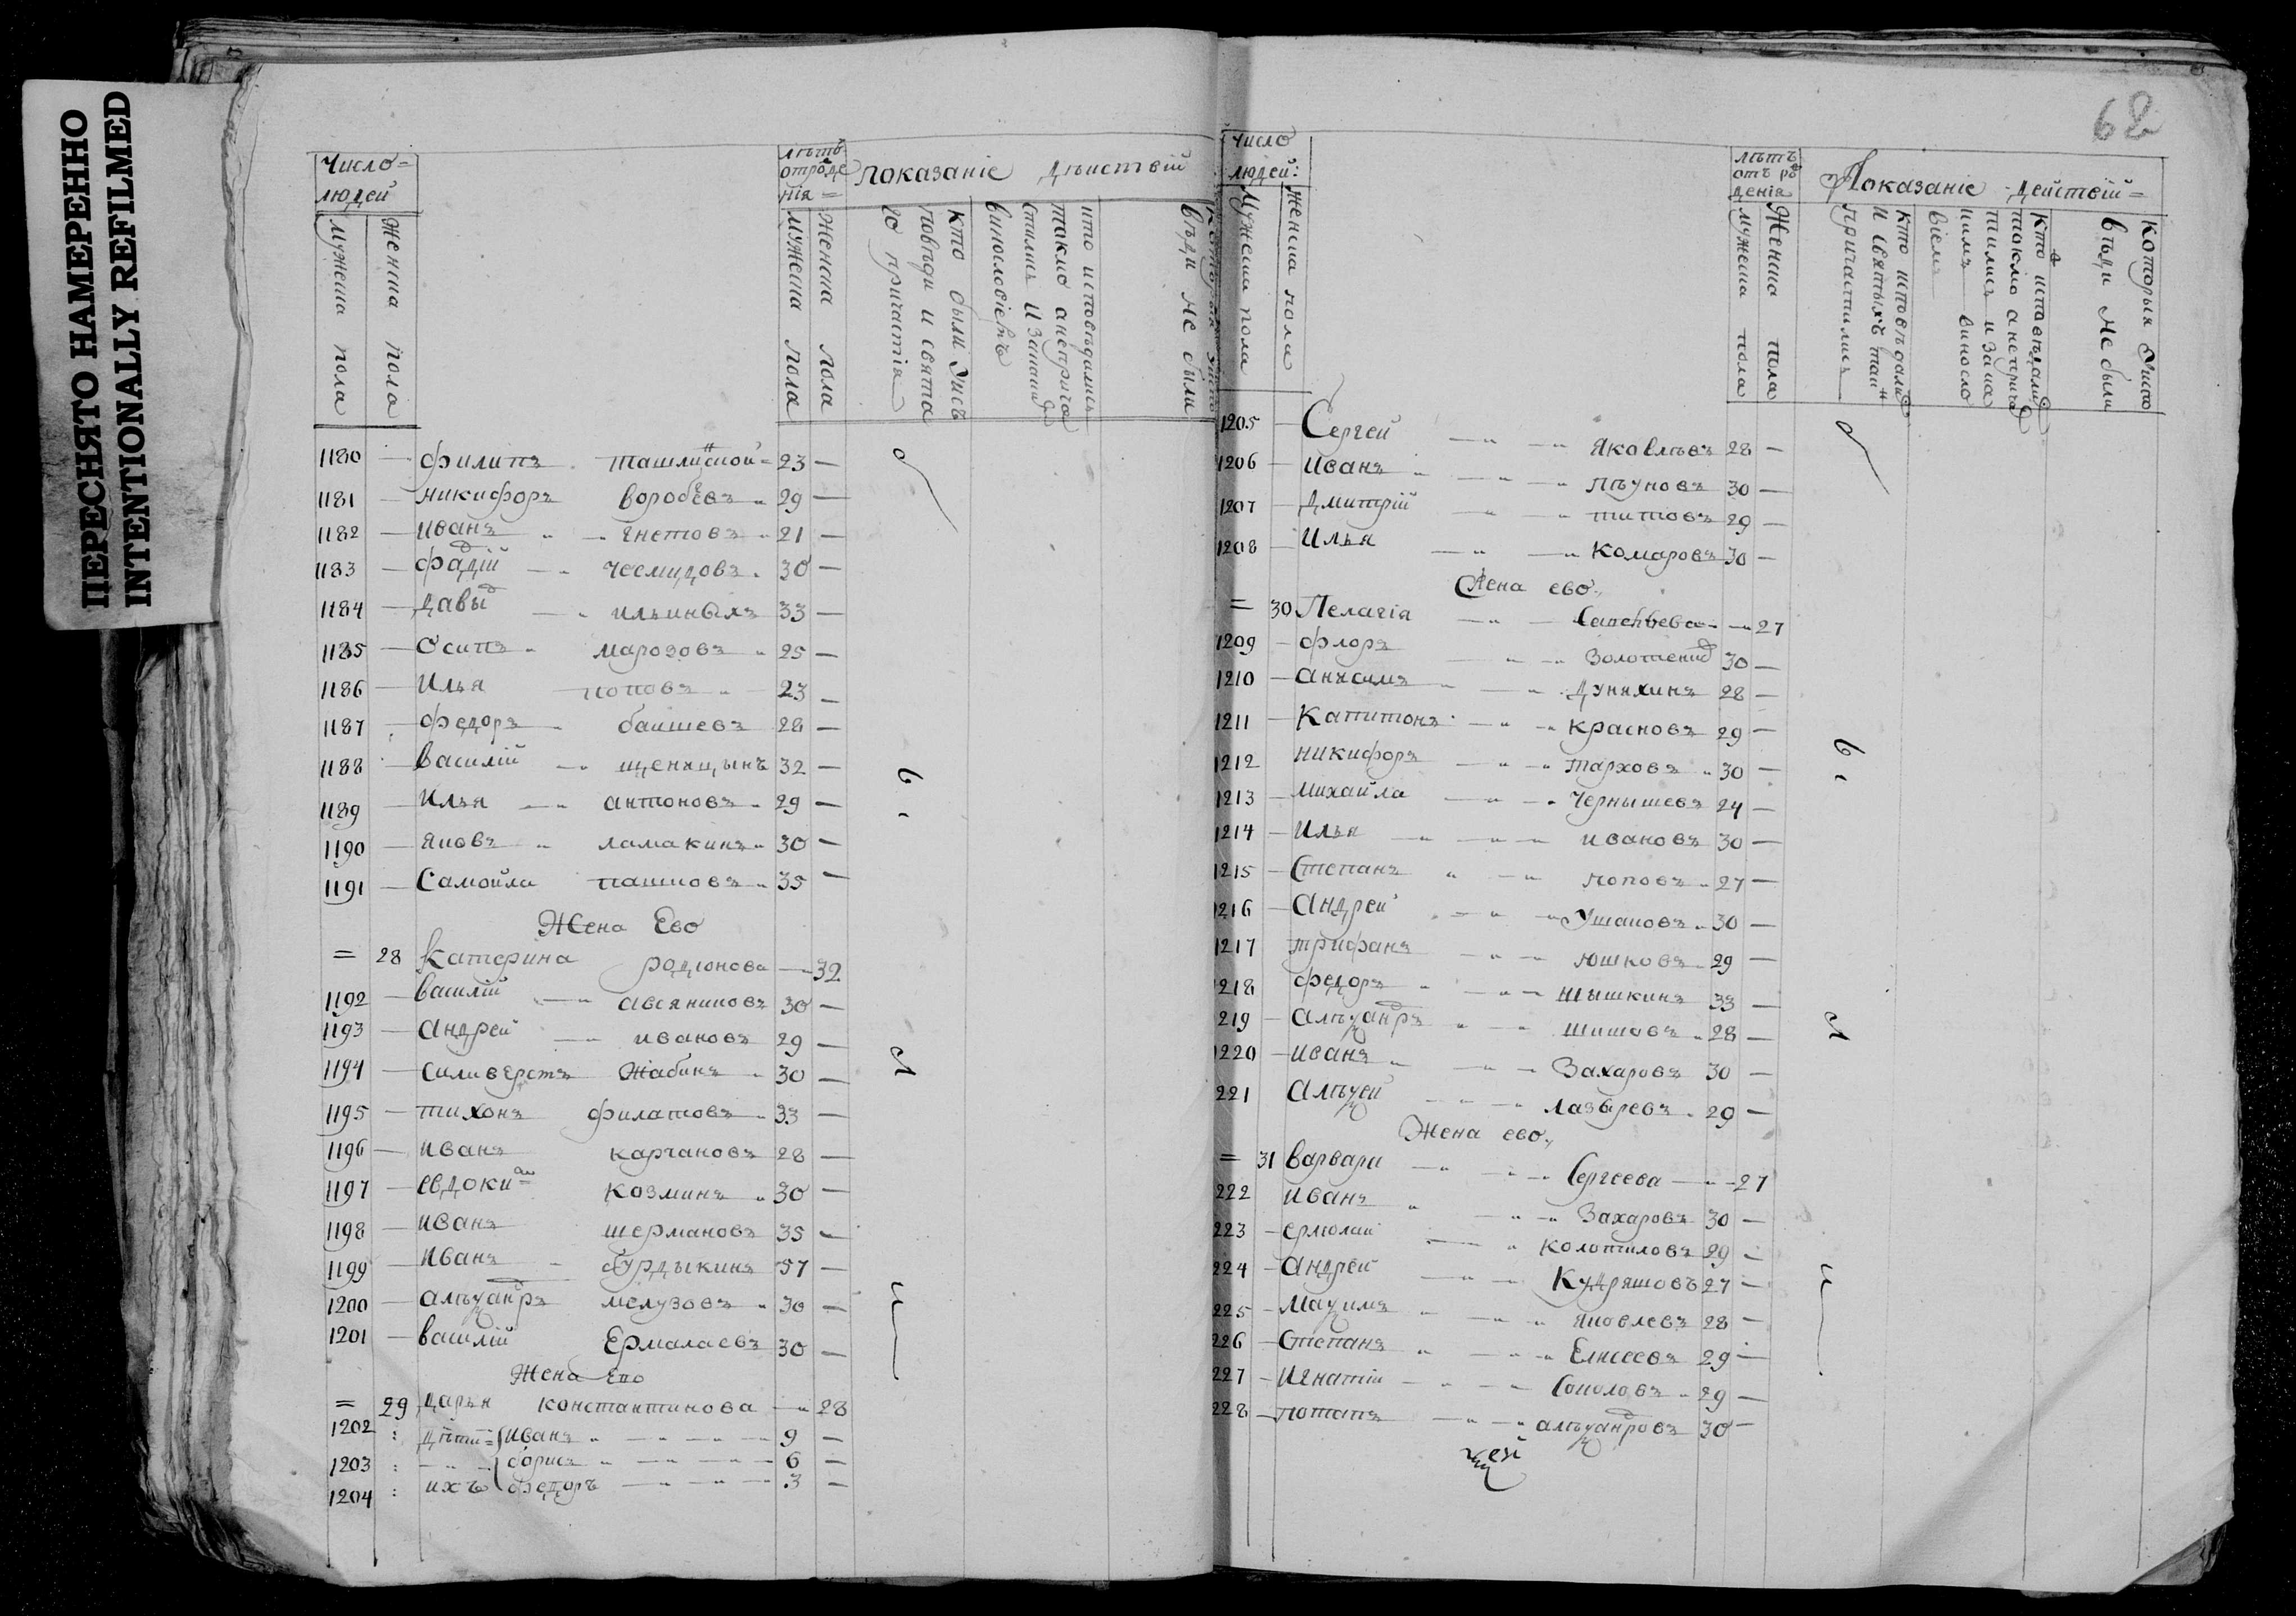 ПЕРЕСНЯТО НАМЕРЕННО
INTENTIONALLY REFILMED
Число=
людей
мужеска пола
Женска пола
лѣтъ
отрожде
нія=
мужеска пола
Женска пола
показаніе дѣиствій
кто были уисъ
повѣди и свята
го причастія
кто исповѣдались
токмо анеприча
стились И закаки
винословіемъ
которыя уиспо
вѣди не были
1180 — филипъ ташлинской = 23 —
1181 — никифоръ воробьевъ „ 29 —
1182 — иванъ „ — гнетовъ „ 21 —
1183 — фадій — „ чесмидовъ „ 30 —
1184 — давыд — „ ильиныхъ 33 —
1185 — Осипъ „ марозовъ „ 25 —
1186 — Илья поповъ „ 23 —
1187 — федоръ „ баишевъ 28 —
1188 — василій — „ щенящынъ 32 —
1189 — Илья — „ антоновъ „ 29 —
1190 — яковъ „ ламакинъ „ 30 —
1191 — Самойла пашковъ „ 35 —
Жена Ево
= 28 Катерина родионова — 32
1192 — василій — „ авсяниковъ 30 —
1193 — андрей — „ ивановъ 29 —
1194 — силиверстъ Жабинъ „ 30 —
1195 — тихонъ филатовъ „ 33 —
1196 — иванъ карчановъ 28 —
1197 — евдоким козминъ „ 30 —
1198 — иванъ шермановъ 35 —
1199 — иванъ „ бурдыкинъ 57 —
1200 — алѣуандръ мелузовъ „ 30 —
1201 — василій Ермалаевъ 30 —
Жена Ево
= 29 дарья константинова — „ 28
1202 : дѣти= иванъ „ — „ — „ — 9 —
1203 : — „ — борисъ „ — „ — „ — 6 —
1204 : ихъ федоръ — „ — „ — 3 —
62
число
людей:
Мужеска пола
женска пола
лѣтъ
отъ ро
денія
мужеска пола
Женска пола
Показаніе действій=
кто исповѣдали
и святыхъ таин
причастились
Кто исповѣдали
токмо анеприча
тились и зака
кимъ виносло
віемъ
Которыя Уиспо
вѣди Не были
1205 — Сергей — „ — „ Яковлѣвъ 28 —
1206 — иванъ „ — „ — „ пѣуновъ 30 —
1207 — Дмитрій — „ — „ титовъ 29 —
1208 — Илья — „ — „ Комаровъ 30 —
Жена ево„
= 30 Пелагія — „ — Савельева — „ 27
1209 — флоръ — „ — „ Золотенков 30 —
1210 — анисимъ „ — „ дуняхинъ 28 —
1211 — Капитонъ — „ — „ красновъ 29 —
1212 никифоръ — „ — „ тарховъ „ 30 —
1213 — михайла — „ — „ чернышевъ 24 —
1214 — Илья — „ — „ — ивановъ 30 —
1215 — Степанъ „ — „ поповъ „ 27 —
1216 — андрей „ — „ — Ушаковъ „ 30 —
1217 трифанъ — „ — юшковъ „ 29 —
1218 федоръ „ — „ — шышкинъ 33 —
219 — алѣуандръ „ — „ шишовъ „ 28 —
1220 — иванъ „ — „ — Захаровъ 30 —
221 алѣуей — „ — „ лазаревъ „ 29 —
Жена ево„
= 31 варвара — „ — „ — Сергеева — „ — 27
222 иванъ „ — „ — Захаровъ 30 —
223 — ермолай — „ Колотиловъ 29 —
224 — андрей — „ — „ Кудряшовъ 27 —
225 — Мауимъ „ — „ — „ яковлевъ 28 —
226 — Степанъ „ — „ — Елисеевъ 29 —
227 — Игнатій — „ — „ Соколовъ „ 29 —
228 — потапъ — „ — „ алѣуандровъ 30 —